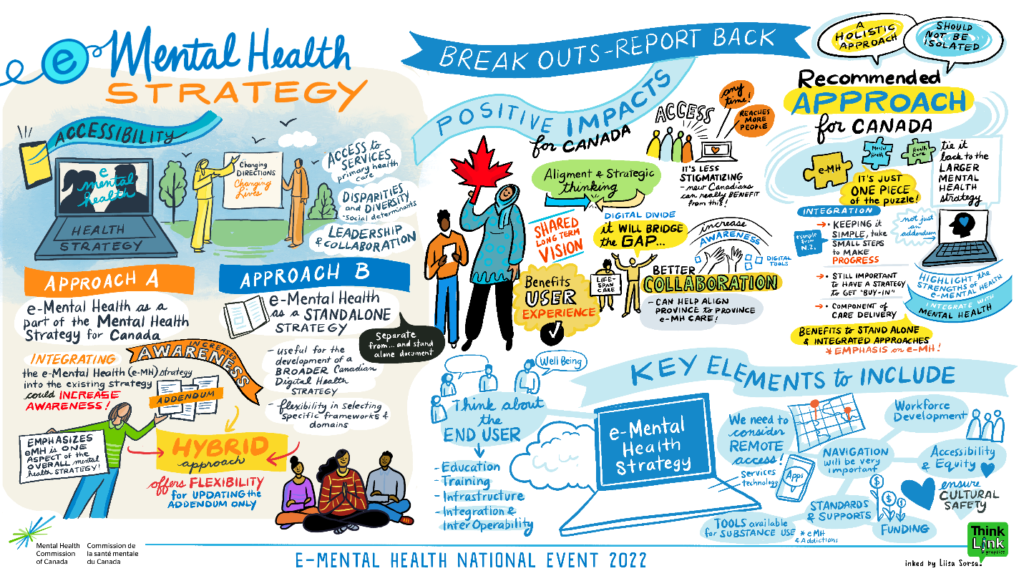 e Mental Health
STRATEGY
ACCESSIBILITY
e
mental
health
HEALTH
STRATEGY
Changing
DIRECTIONS
Changing
Lives
ACCESS to
SERVICES
primary health
care
DISPARITIES
and DIVERSITY
- social determinants
LEADERSHIP
& COLLABORATION
APPROACH A
e-Mental Health as a
part of the Mental Health
Strategy for Canada
INTEGRATING
the e-Mental Health (e-MH) strategy
into the existing strategy
could INCREASE
AWARENESS!
INCREASED
AWARENESS
ADDENDUM
EMPHASIZES
eMH is ONE
ASPECT of the
OVERALL mental
health STRATEGY!
HYBRID
approach
offers FLEXIBILITY
for UPDATING the
ADDENDUM ONLY
APPROACH B
e-Mental Health
as a STANDALONE
STRATEGY
Separate
from... and stand
alone document
- useful for the
development of a
BROADER Canadian
Digital Health
STRATEGY
- flexibility in selecting
specific frameworks &
domains
BREAK OUTS - REPORT BACK
POSITIVE IMPACTS
for CANADA
ACCESS
any
time!
REACHES
MORE
PEOPLE
IT'S LESS
STIGMATIZING
- new Canadians
can really BENEFIT
from this!
Aligment & Strategic
thinking
SHARED
LONG TERM
VISION
DIGITAL DIVIDE
it WILL BRIDGE
the GAP...
increase
AWARENESS
DIGITAL
TOOLS
Benefits
USER
EXPERIENCE
LIFE-
SPAN
CARE
BETTER
COLLABORATION
- CAN HELP ALIGN
PROVINCE to PROVINCE
e-MH CARE!
A
HOLISTIC
APPROACH
SHOULD
NOT BE
ISOLATED
Recommended
APPROACH
for CANADA
e-MH
Mental
Health
Health
Care
tie it
back to the
LARGER
MENTAL
HEALTH
strategy
IT'S JUST
ONE PIECE
of the puzzle!
INTEGRATION
example
from
N.Z.
→ • KEEPING it
SIMPLE, take
SMALL STEPS
to MAKE
PROGRESS
not just
an
addendum
→ • STILL IMPORTANT
to HAVE a STRATEGY
to GET "BUY-IN"
→ • COMPONENT of
CARE DELIVERY
HIGHLIGHT the
STRENGTHS of
e-MENTAL HEALTH
INTEGRATE WITH
MENTAL HEALTH
BENEFITS to STAND ALONE
& INTEGRATED APPROACHES
* EMPHASIS on e-MH!
Well Being
Think about
the
END USER
- Education
- Training
- Infrastructure
- Integration &
Inter Operability
KEY ELEMENTS to INCLUDE
e-Mental
Health
Strategy
We need to
consider
REMOTE
access!
Services
technology
Apps
NAVIGATION
will be very
important
Workforce
Development
Accessibility
& Equity
ensure
CULTURAL
SAFETY
STANDARDS
& SUPPORTS
FUNDING
TOOLS available
for SUBSTANCE USE
* eMH
& Addictions
Mental Health
Commission
of Canada
Commission de
la santé mentale
du Canada
E-MENTAL HEALTH NATIONAL EVENT 2022
Think
Link
graphics
inked by Liisa Sorsa